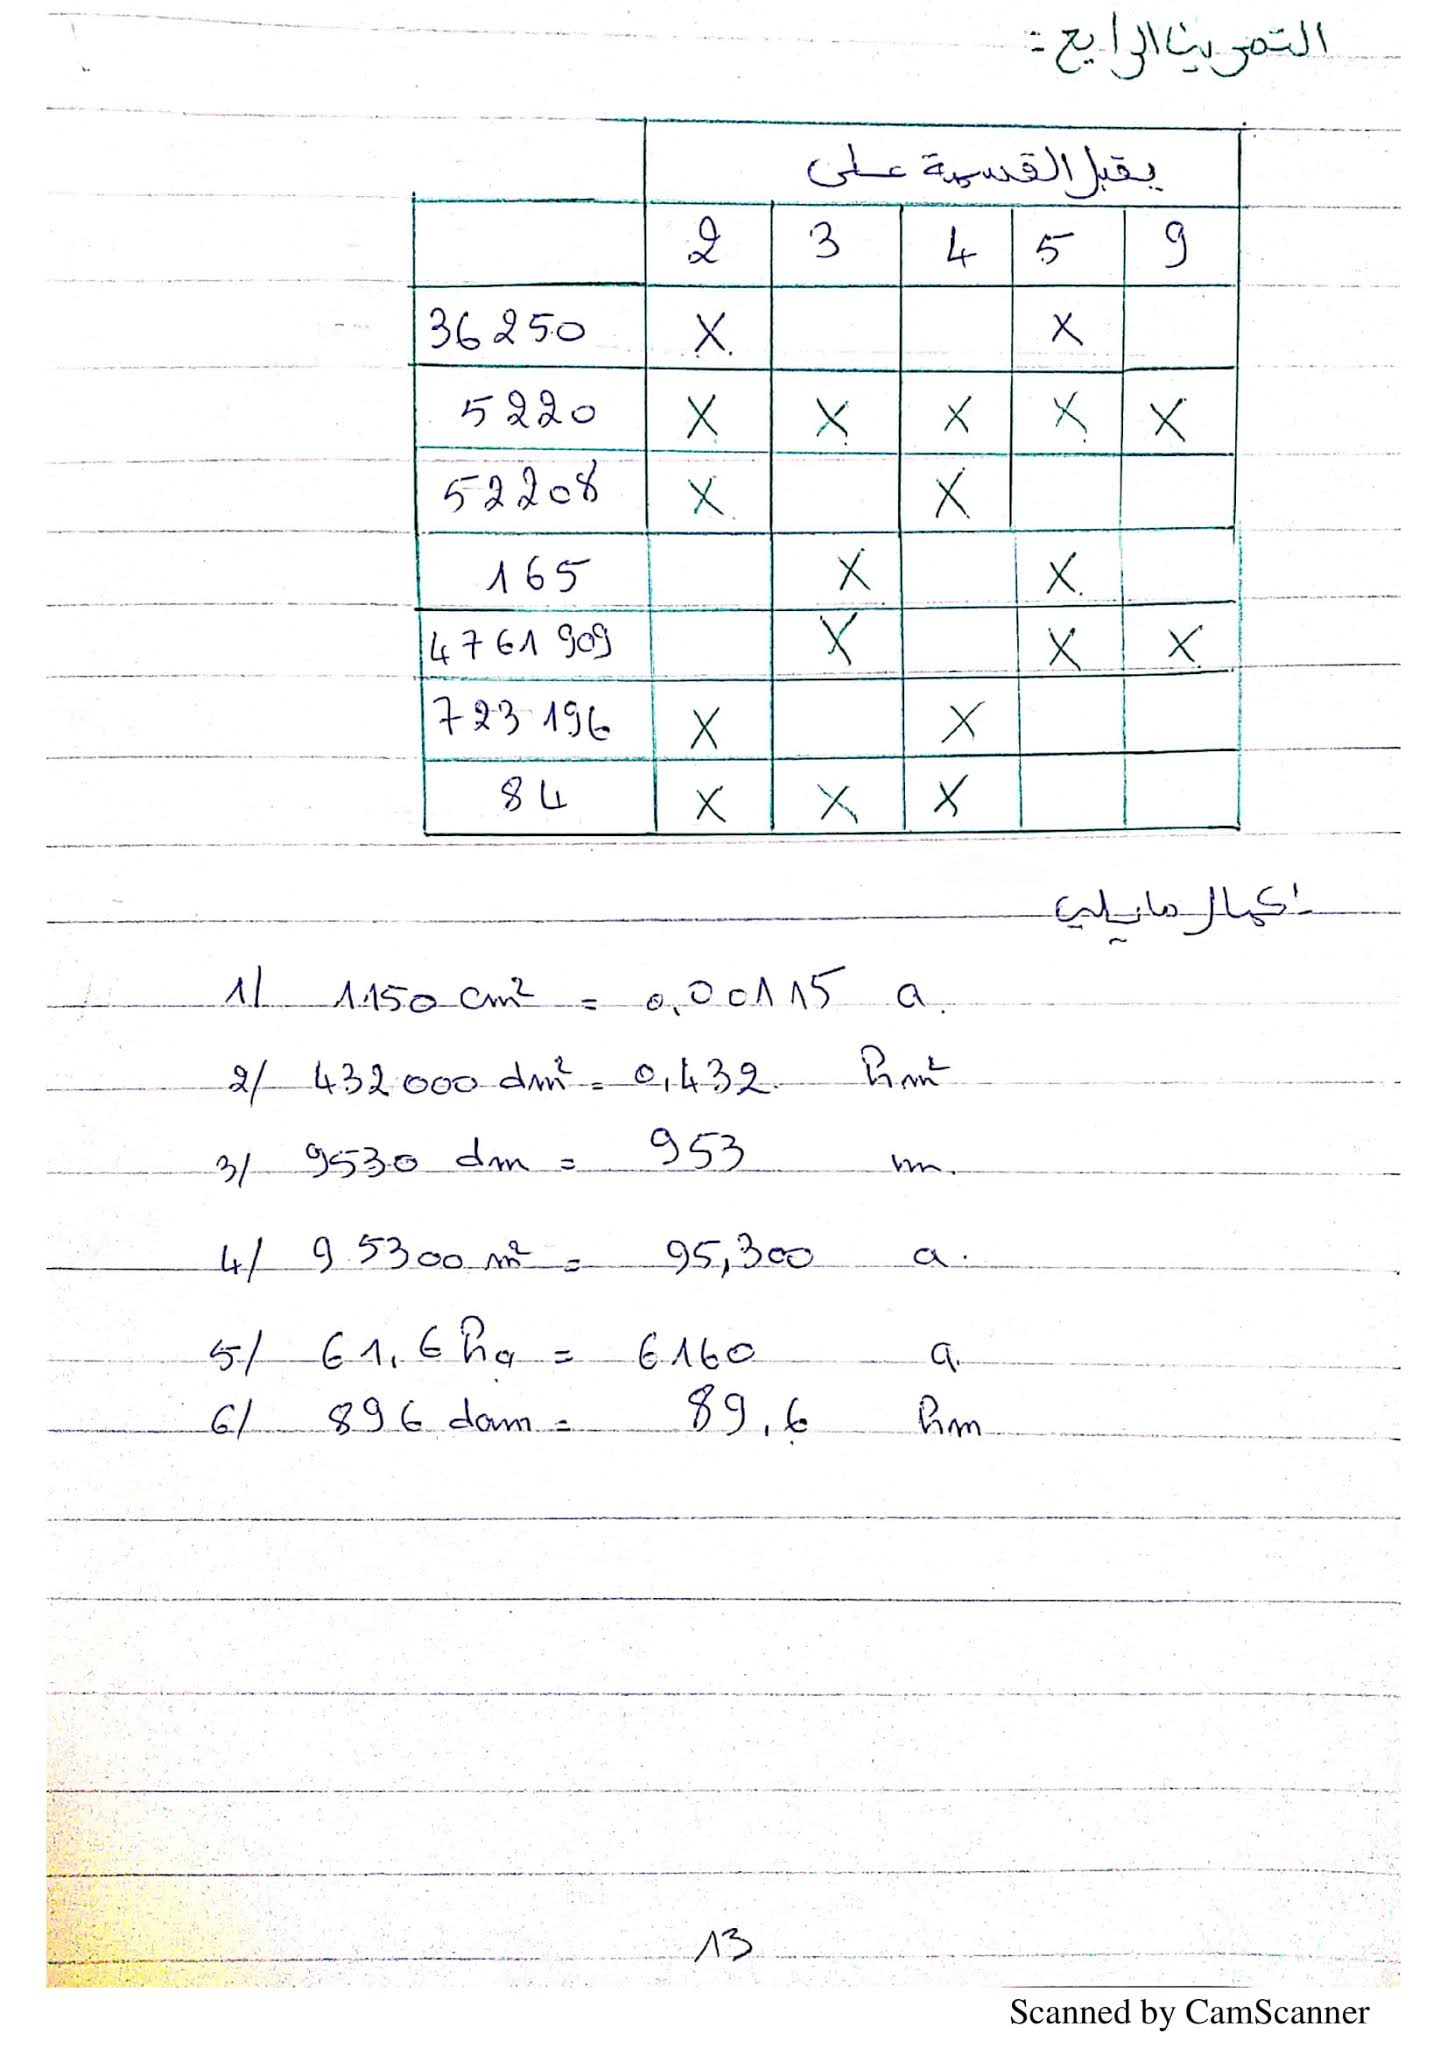 التمرين الرابع :
يقبل القسمة على
2 3 4 5 9
36250 X X
5220 X X X X X
52208 X X
165 X X
4761909 X X X
723196 X X
84 X X X
إكمال مايلي
1/ 1150 cm² = 0,00115 a.
2/ 432000 dm² = 0,432 hm²
3/ 9530 dm = 953 m.
4/ 95300 m² = 95,300 a.
5/ 61,6 ha = 6160 a.
6/ 896 dam = 89,6 hm
13
Scanned by CamScanner